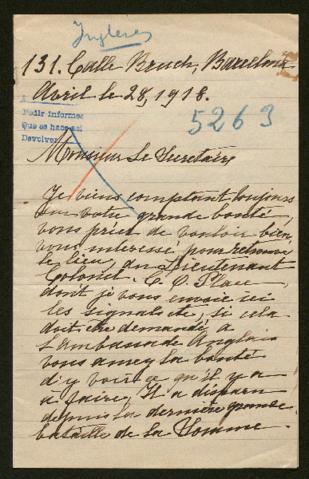 Ingleses
131. Calle Bruch, Barcelona.
Avril le 28, 1918.
5263
Pedir informes
Que se haga así
Devolver
Monsieur Le Secretaire
Je viens comptant toujours
sur votre grande bonté,
vous prier de vouloir bien
vous interessé pour retrouver
le lieu, du Lieutenant
Colonel. C. C. Place,
dont je vous envoie ici
les signalité, si cela
doit être demandé, a
L'ambassade Anglais
vous aurez la bonté
d'y voir ce qu'il y a
a faire, Il a disparu
depuis la dernière grande
bataille de la Somme.